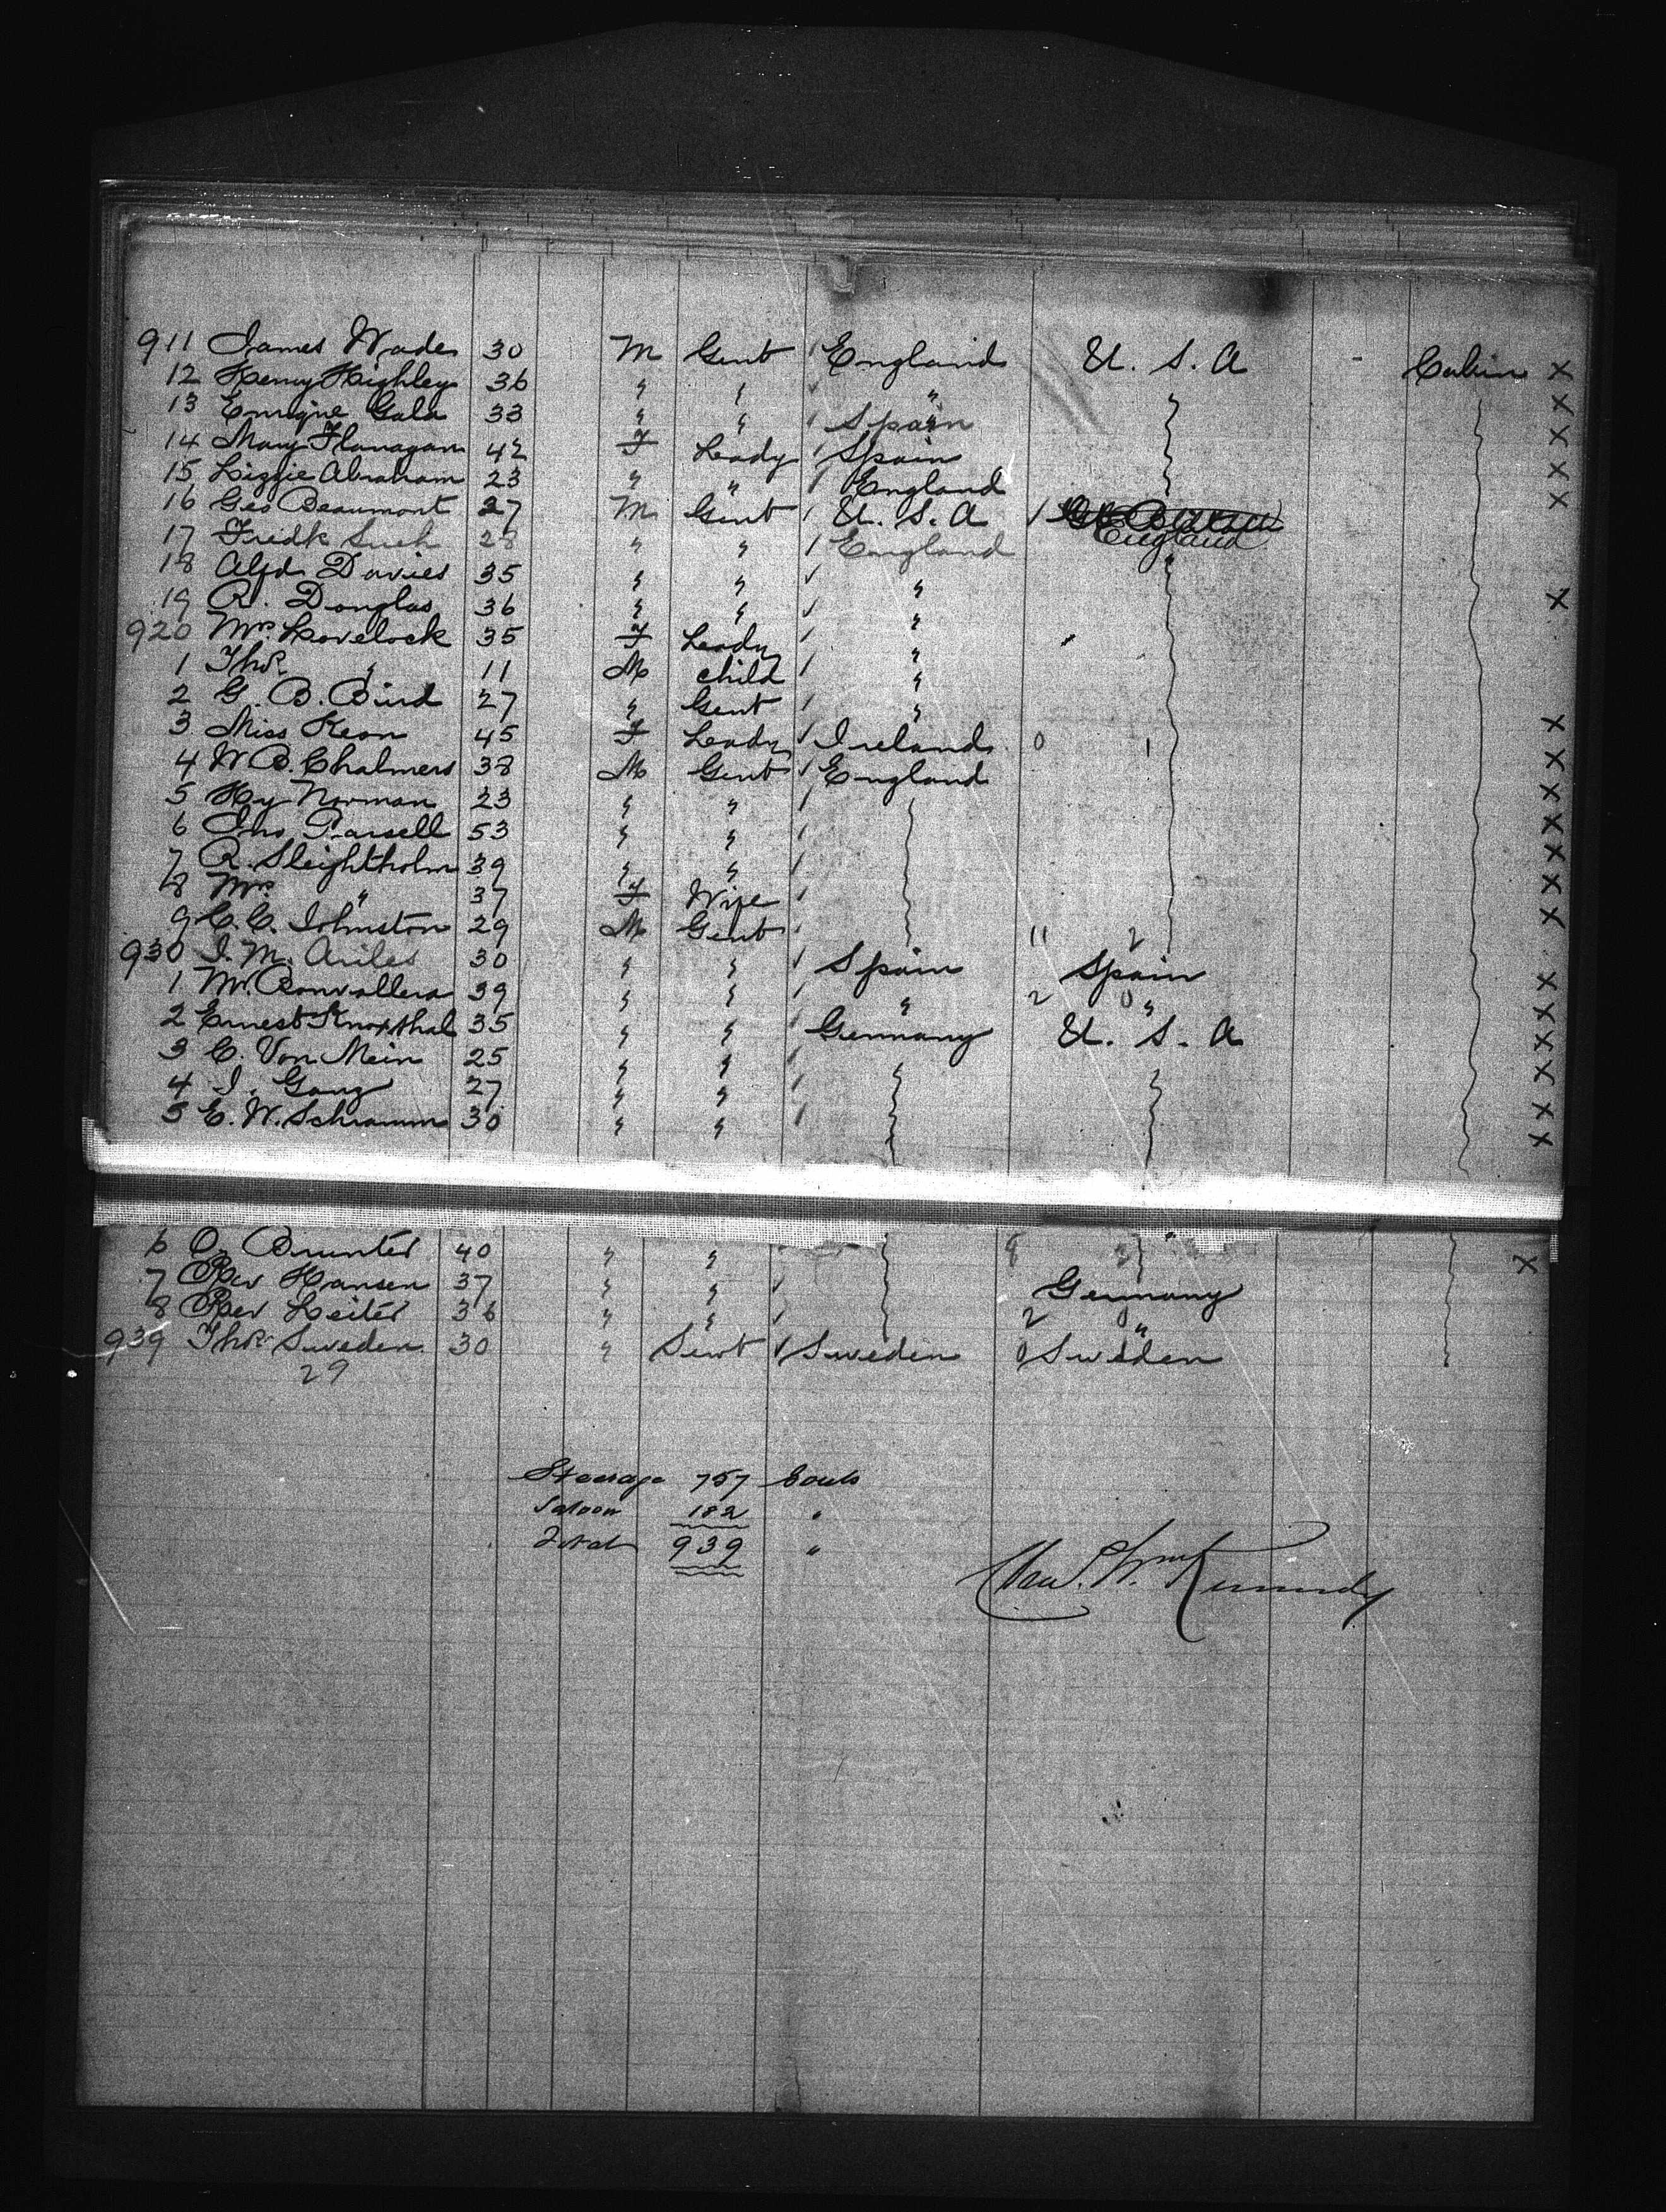 911 James Wade 30 M Gent / England U. S. A - Cabin X
12 Henry Highley 36 " " ✓ " X
13 Enrique Gala 33 " " / Spain X
14 Mary Flanagan 42 F Lady / Spain X
15 Lizzie Abraham 23 " " / England X
16 Geo Beaumont 27 M Gent / U. S. A / England
17 Fredk Such 28 " " / England "
18 Alfd Davies 35 " " ✓ " X
19 R. Douglas 36 " " ✓ "
920 Mrs Lovelock 35 F Lady / "
1 Thos " 11 M child / "
2 G. B. Bird 27 " Gent / " X
3 Miss Keon 45 F Lady / Ireland 0 1 X
4 W B. Chalmers 38 M Gent ✓ England X
5 Hy Norman 23 " " / X
6 Jno Parsell 53 " " / X
7 R. Sleightholm 39 " " / X
8 Mrs " 37 F Wife / X
9 C. C. Johnston 29 M Gent / 11 2
930 J. M. Aviles 30 " " / Spain Spain X
1 M. 39 " " / " 2 0 " X
2 Ernest 35 " " / Germany U. S. A X
3 C. Von Mein 25 " " / X
4 J. Ganz 27 " " / X
5 E. W. Schramm 30 " " / X
6 O. Brunter 40 " " X
7 Rev Hansen 37 " " / Germany
8 Rev Leiter 36 " " / 2 0 "
939 Thos Sweden 30 " Sevt / Sweden 0 Sweden
29
Steerage 757 Souls
Saloon 182 "
Total 939 "
Kennedy